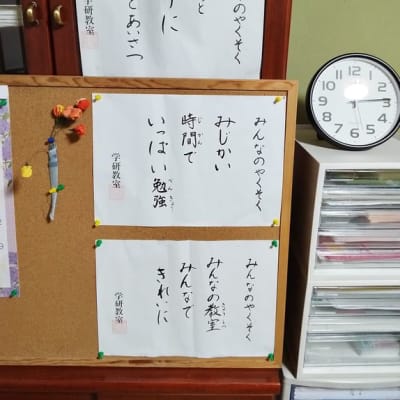 みんなのやくそく
に
とあいさつ
学研教室
みんなのやくそく
みじかい
時間で
じかん
いっぱい勉強
べんきょう
学研教室
みんなのやくそく
みんなの教室
きょうしつ
みんなで
きれいに
学研教室
12
1
2
3
4
5
6
7
8
9
10
11